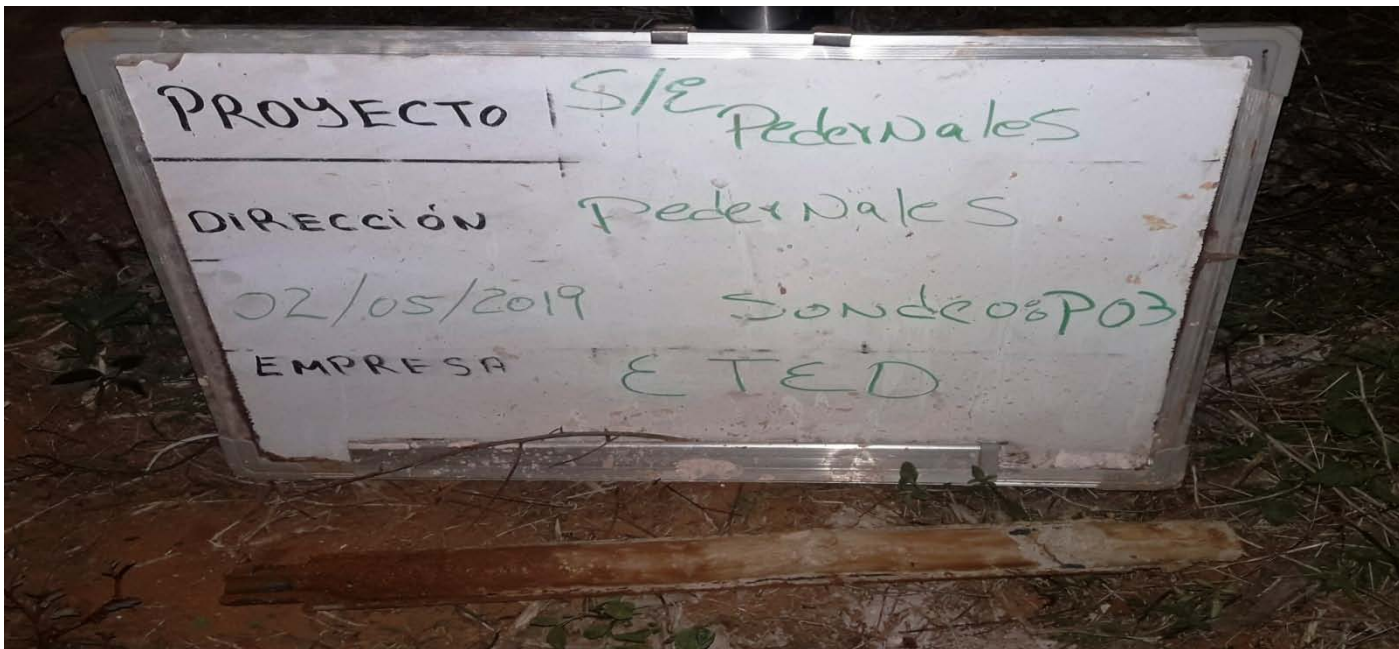 PROYECTO S/E Pedernales
DIRECCIÓN Pedernales
02/05/2019 Sondeo:P03
EMPRESA ETED